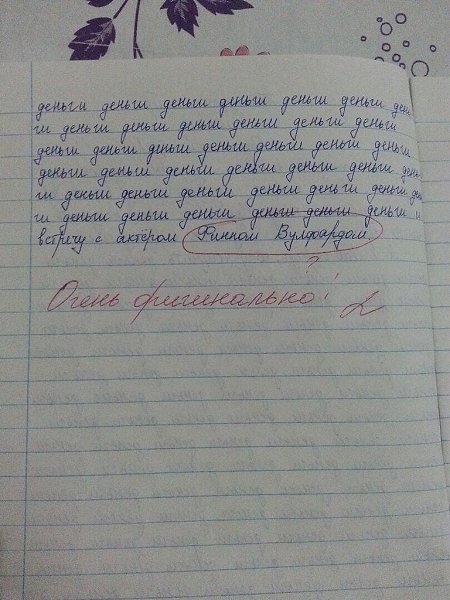 деньги деньги деньги деньги деньги деньги день
ги деньги деньги деньги деньги деньги деньги
деньги деньги деньги деньги деньги деньги деньги
деньги деньги деньги деньги деньги деньги день
ги деньги деньги деньги деньги деньги деньги день
ги деньги деньги деньги деньги деньги деньги и
встречу с актёром Финном Вулфардом
?
Очень оригинально! 2